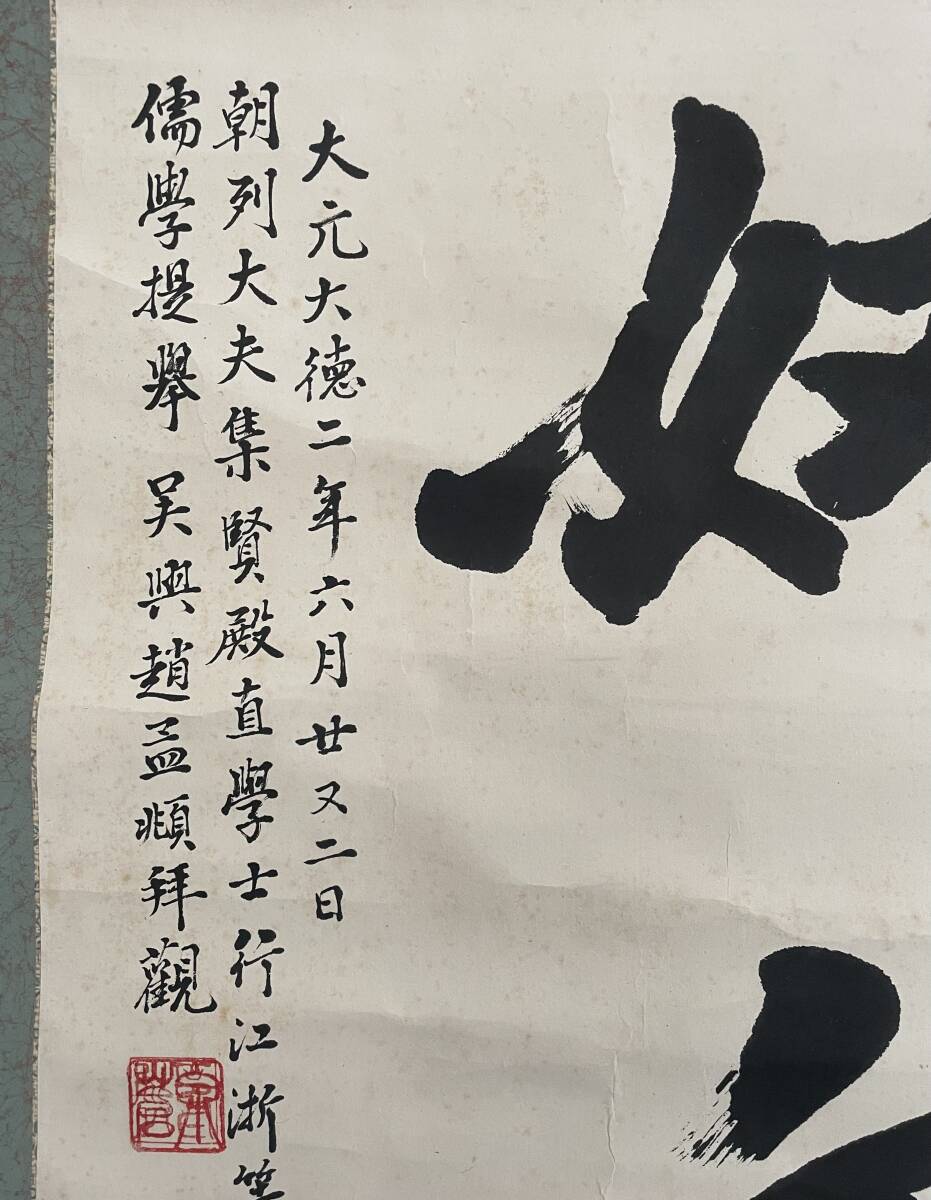 大元大德二年六月廿又二日
朝列大夫集賢殿直學士行江浙等
儒學提舉吴興趙孟頫拜觀